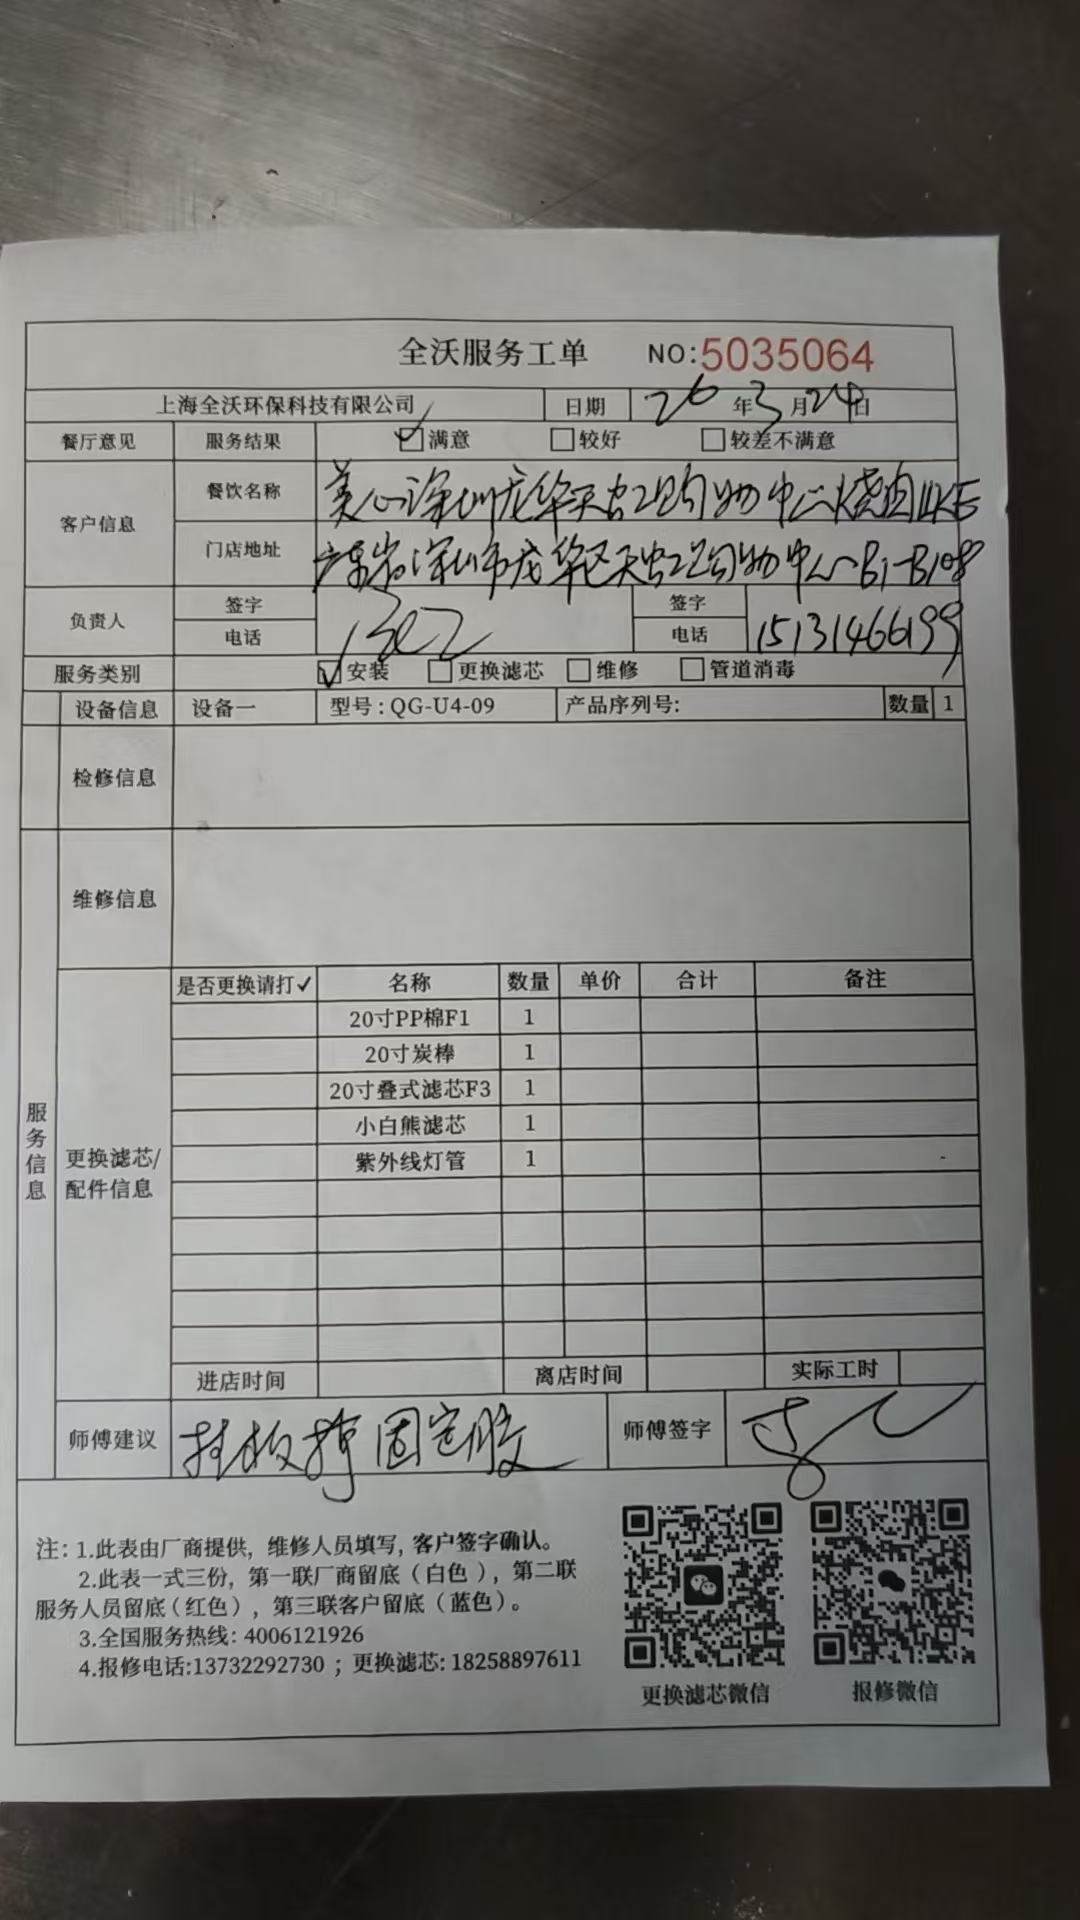 全沃服务工单 NO:5035064
上海全沃环保科技有限公司 日期 26年3月24日
餐厅意见 服务结果 ✓满意 □较好 □较差不满意
客户信息 餐饮名称 美心深圳龙华天虹购物中心烧肉LIKE
门店地址 广东省深圳市龙华区天虹购物中心B1-B108
负责人 签字 签字
电话 电话 15131466199
服务类别 ✓安装 □更换滤芯 □维修 □管道消毒
设备信息 设备一 型号:QG-U4-09 产品序列号: 数量 1
检修信息
维修信息
服务信息
更换滤芯/配件信息
是否更换请打✓ 名称 数量 单价 合计 备注
20寸PP棉F1 1
20寸炭棒 1
20寸叠式滤芯F3 1
小白熊滤芯 1
紫外线灯管 1
进店时间 离店时间 实际工时
师傅建议 挂板 固定胶 师傅签字
注:1.此表由厂商提供,维修人员填写,客户签字确认。
2.此表一式三份,第一联厂商留底(白色),第二联
服务人员留底(红色),第三联客户留底(蓝色)。
3.全国服务热线:4006121926
4.报修电话:13732292730;更换滤芯:18258897611
更换滤芯微信 报修微信